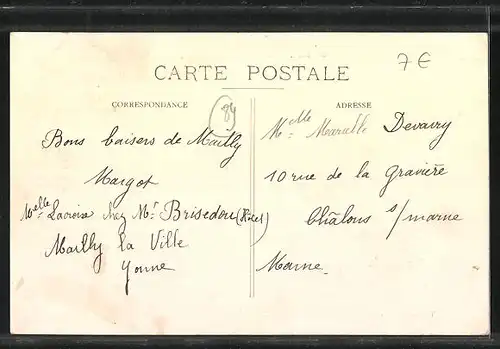 7€
CARTE POSTALE
(84)
CORRESPONDANCE
ADRESSE
Bons baisers de Mailly
Margot
Melle Lacroix chez Mr Brisedou (Hôtel)
Mailly la Ville
Yonne
Melle Marcelle Devavry
10 rue de la Gravière
Châlons s/marne
Marne